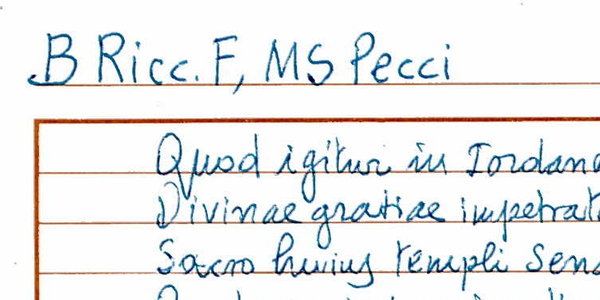 B Ricc. F, MS Pecci
Quod igitur in Iordan
Divinae gratiae impetrat
Sacro huius templi sens